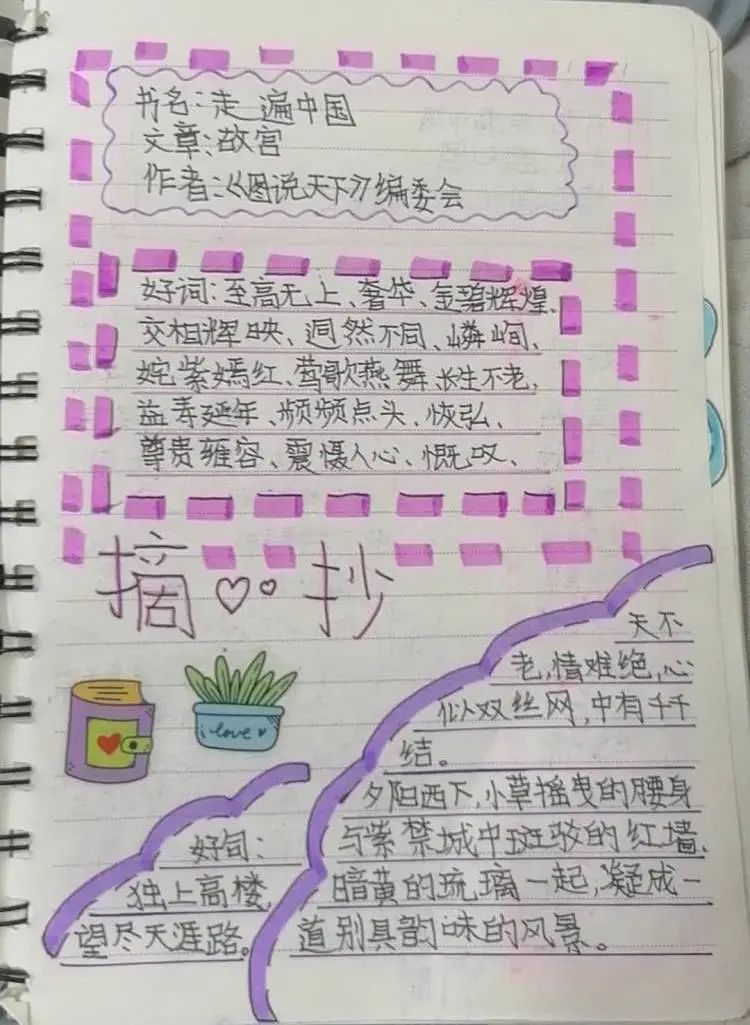 书名:走遍中国
文章:故宫
作者:《图说天下》编委会
好词:至高无上、奢华、金碧辉煌、
交相辉映、迥然不同、嶙峋、
姹紫嫣红、莺歌燕舞、长生不老、
益寿延年、频频点头、恢弘、
尊贵雍容、震慑人心、慨叹、
摘抄
i love
好句:
独上高楼,
望尽天涯路。
天不
老,情难绝,心
似双丝网,中有千千
结。
夕阳西下,小草摇曳的腰身
与紫禁城中斑驳的红墙、
暗黄的琉璃一起,凝成一
道别具韵味的风景。